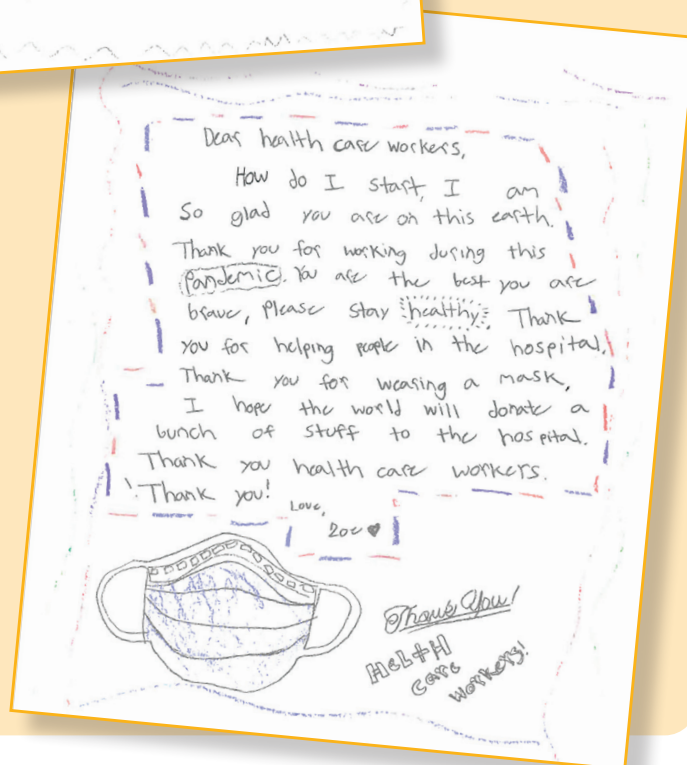 Dear health care workers,
How do I start, I am
So glad you are on this earth.
Thank you for working during this
Pandemic. You are the best you are
brave, Please stay healthy. Thank
you for helping people in the hospital.
Thank you for wearing a mask,
I hope the world will donate a
bunch of stuff to the hospital.
Thank you health care workers.
Thank you!
Love,
Zoe
Thank You!
HeLtH
care
workers!